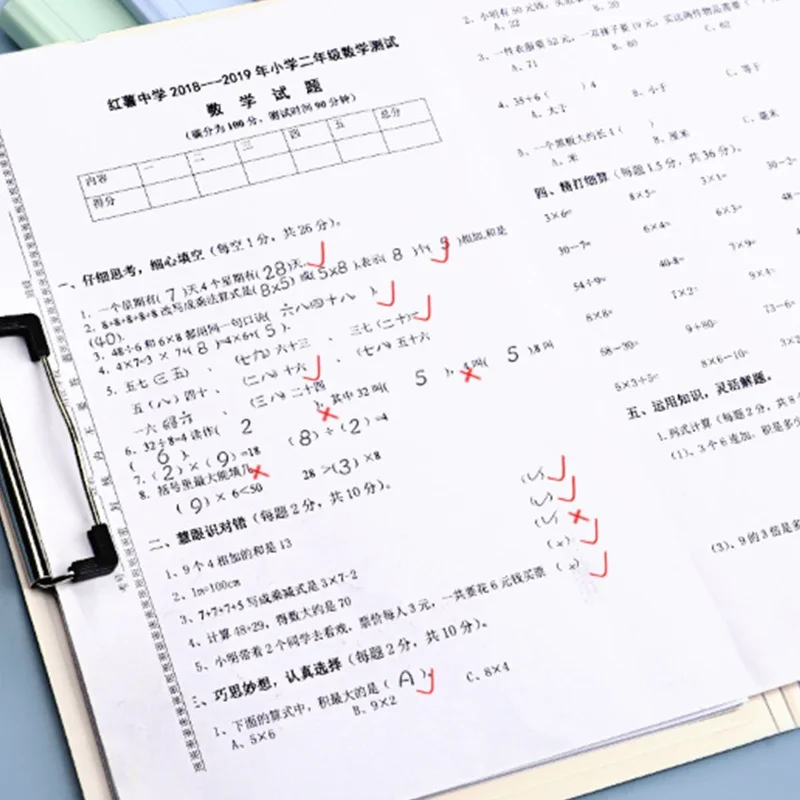 红薯中学2018---2019年小学二年级数学测试
数 学 试 题
(满分为100分,测试时间90分钟)
内容 一 二 三 四 五 总分
得分
一、仔细思考,细心填空(每空1分,共26分)。
1. 一个星期有(7)天4个星期有(28)天.
2. 8+8+8+8+8改写成乘法算式是(8×5)或(5×8),表示(8)个(5)相加,和是
(40).
3. 48÷6和6×8都用同一句口诀(六八四十八)
4. 4×7=3×7+(8)=4×6+(5).
5. 五七(三五)、(七九)六十三、三七(二十一)
五(八)四十、(二八)十六、(七八)五十六
一六得六、(三八)二十四
6. 32÷8=4读作(2),其中32叫(5),4叫(5),8叫
(6).
7.(2)×(9)=18 (8)÷(2)=4
8. 括号里最大能填几
(9)×6<50 28>(3)×8
二、慧眼识对错(每题2分,共10分)。
1、9个4相加的和是13 (√)
2、1m=100cm (√)
3、7+7+7+5写成乘减式是3×7-2 (√)
4、计算48+29,得数大约是70 (×)
5、小明带着2个同学去看戏,票价每人3元,一共要花6元钱买票 (×)
三、巧思妙想,认真选择(每题2分,共10分)。
1、下面的算式中,积最大的是(A)。
A、5×6 B、9×2 C、8×4
2、小明有50元钱,买
A、22 B、20
3、一件衣服要52元,一双裤子要19元,买这两件物品需要(
A、71 B、60 C、62
4、35÷6( )4
A、大于 B、小于 C、等于
5、一个黑板大约长4( )
A、米 B、厘米 C、毫米
四、精打细算(每题1.5分,共36分)。
3×6= 8×5= 3×1= 30-2=
30-7= 6×4= 6×3= 48-
54÷9= 40-8= 7×9= 4
8×8= 7×2= 9×4=
58-30= 9+80= 73-6=
5×3+5= 8×6-10= 3×2
五、运用知识,灵活解题。
1.列式计算(每题2分,共8分
(1)、3个6连加,积是多少
(3)、9的3倍是多